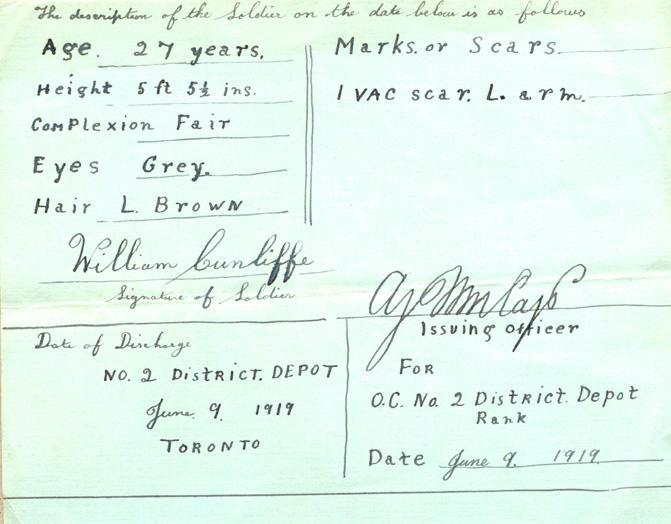 The description of the Soldier on the date below is as follows
Age. 27 years.
Height 5 ft 5½ ins.
Complexion Fair
Eyes Grey.
Hair L. Brown
Marks. or Scars.
1 VAC scar. L. arm.
William Cunliffe
Signature of Soldier
Issuing officer
Date of Discharge
NO. 2 DISTRICT. DEPOT
June 9. 1919
TORONTO
FOR
O.C. No. 2 District. Depot
Rank
Date June 9. 1919.